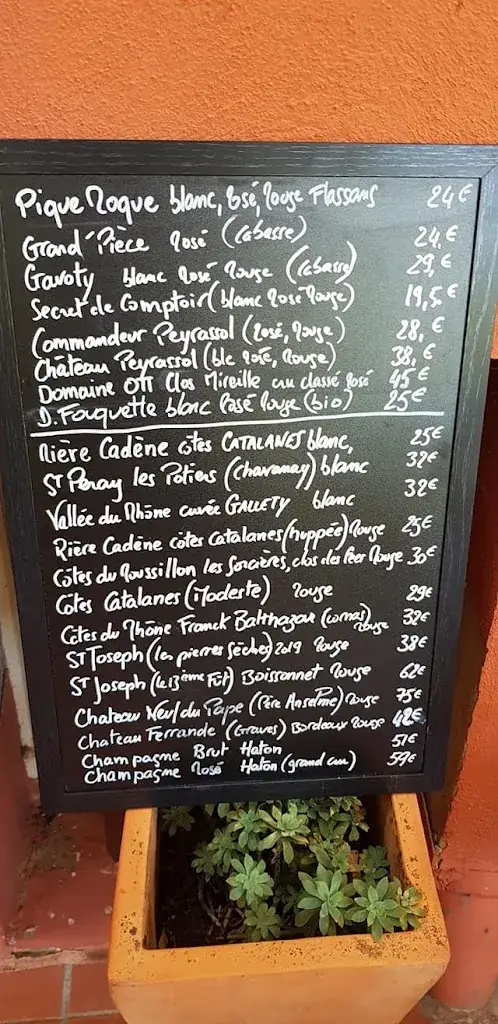 Pique Roque blanc, Rosé, Rouge Flassans 24€
Grand'Pièce Rosé (Cabasse) 24,€
Gavoty blanc Rosé Rouge (Cabasse) 29,€
Secret de Comptoir (blanc Rosé Rouge) 19,5€
Commandeur Peyrassol (Rosé, Rouge) 28,€
Château Peyrassol (blc rosé, Rouge) 38,€
Domaine Ott Clos Mireille cru classé Rosé 45€
D. Fouquette blanc Rosé Rouge (bio) 25€
Rière Cadène côtes CATALANES blanc, 25€
ST Peray les Potiers (chavanay) blanc 32€
Vallée du Rhône cuvée GALLETY blanc 32€
Rière Cadène côtes Catalanes (huppée) Rouge 25€
Côtes du Roussillon les Sorcières, clos des Feer Rouge 30€
Côtes Catalanes (Modeste) Rouge 29€
Côtes du Rhône Franck Balthazar (cornas) Rouge 32€
ST Joseph (les pierres sèches) 2019 Rouge 38€
ST Joseph (le 13ème Fût) Boissonnet Rouge 62€
Chateau Neuf du Pape (Père Anselme) Rouge 75€
Chateau Ferrande (Graves) Bordeaux Rouge 42€
Champagne Brut Haton 51€
Champagne Rosé Haton (grand cru) 59€